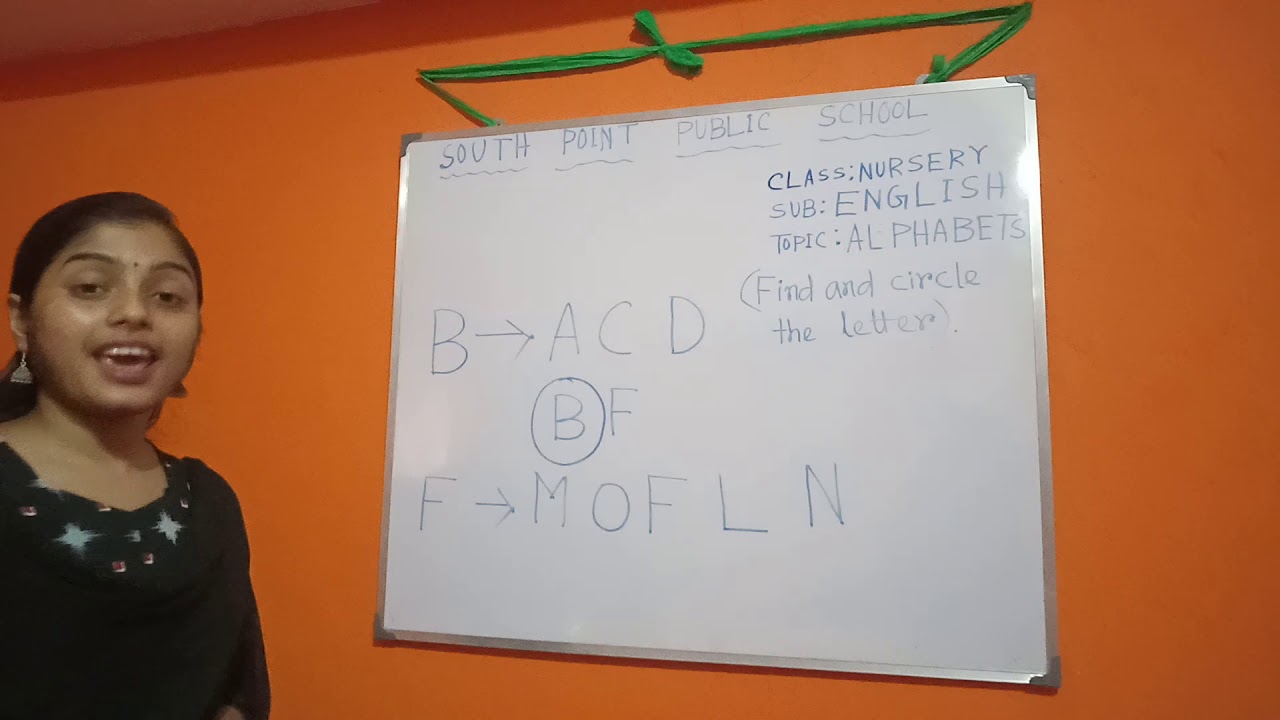 SOUTH POINT PUBLIC SCHOOL
CLASS: NURSERY
SUB: ENGLISH
TOPIC: ALPHABETS
(Find and circle
the letter).
B → A C D
B F
F → M O F L N